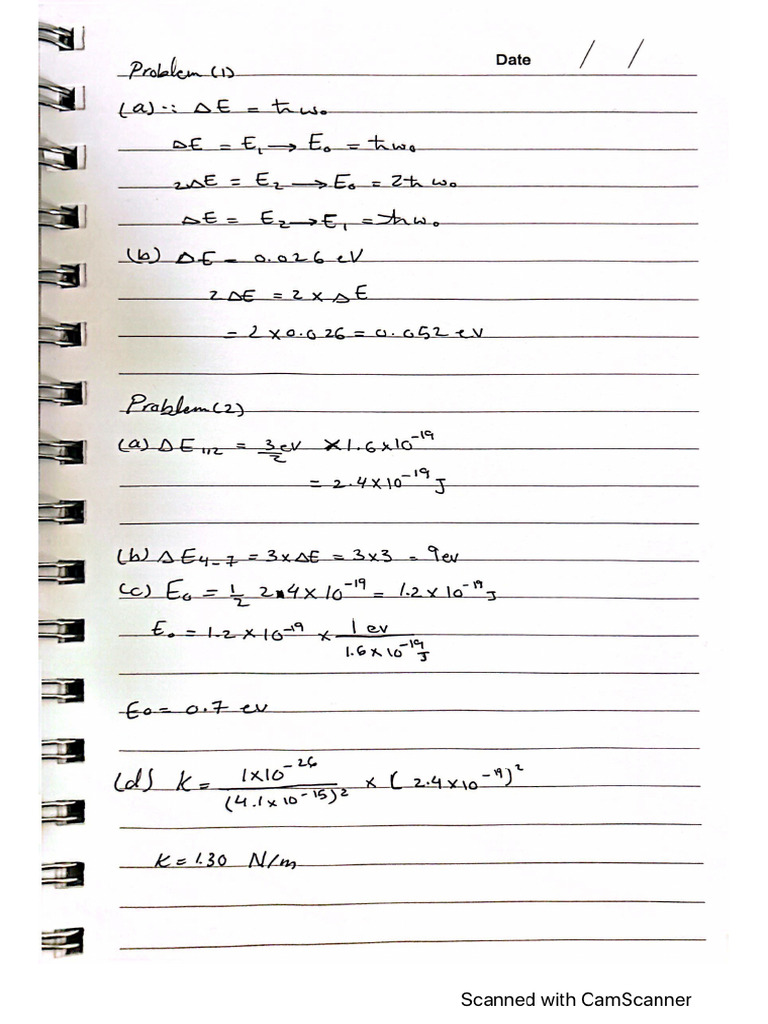 Date / /
Problem (1)
(a) ∵ ΔE = ħω₀
ΔE = E₁ → E₀ = ħω₀
2ΔE = E₂ → E₀ = 2ħω₀
ΔE = E₂ → E₁ = ħω₀
(b) ΔE = 0.026 eV
2ΔE = 2 × ΔE
= 2 × 0.026 = 0.052 ev
Problem (2)
(a) ΔE₁,₂ = 3/2 ev × 1.6 × 10⁻¹⁹
= 2.4 × 10⁻¹⁹ J
(b) ΔE₄₋₇ = 3 × ΔE = 3 × 3 = 9 ev
(c) E₀ = 1/2 2.4 × 10⁻¹⁹ = 1.2 × 10⁻¹⁹ J
E₀ = 1.2 × 10⁻¹⁹ × 1 ev / 1.6 × 10⁻¹⁹ J
E₀ = 0.7 ev
(d) K = 1×10⁻²⁶ / (4.1 × 10⁻¹⁵)² × (2.4 × 10⁻¹⁹)²
K = 1.30 N/m
Scanned with CamScanner